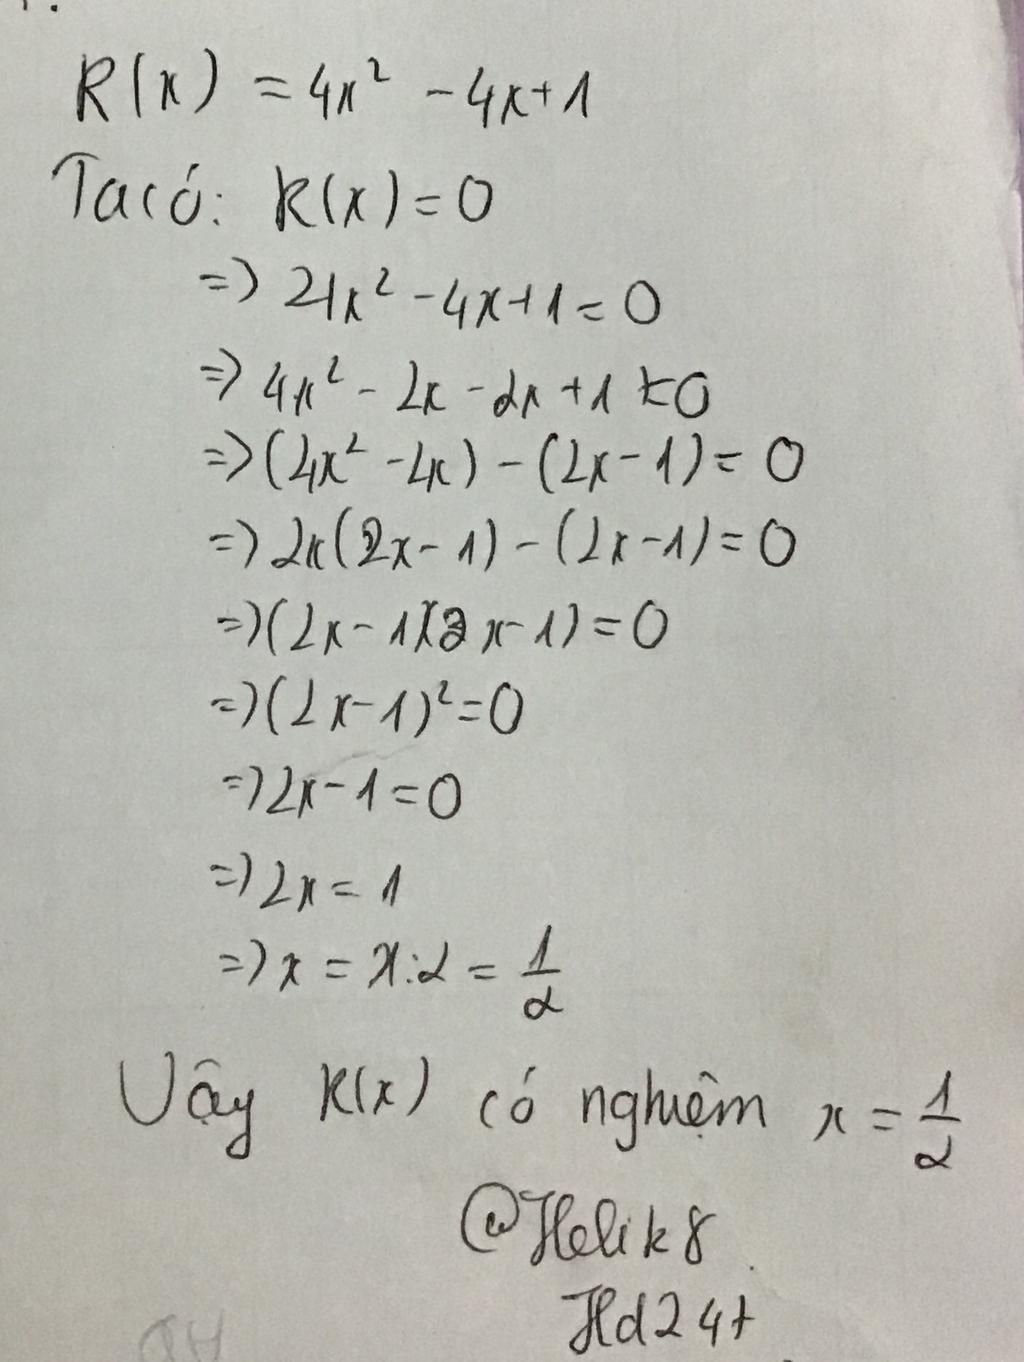 R(x) = 4x² - 4x + 1
Ta có: k(x) = 0
=> 4x² - 4x + 1 = 0
=> 4x² - 2x - 2x + 1 = 0
=> (4x² - 2x) - (2x - 1) = 0
=> 2x(2x - 1) - (2x - 1) = 0
=> (2x - 1)(2x - 1) = 0
=> (2x - 1)² = 0
=> 2x - 1 = 0
=> 2x = 1
=> x = x:2 = 1/2
Vậy k(x) có nghiệm x = 1/2
@Helik8
Hd24+